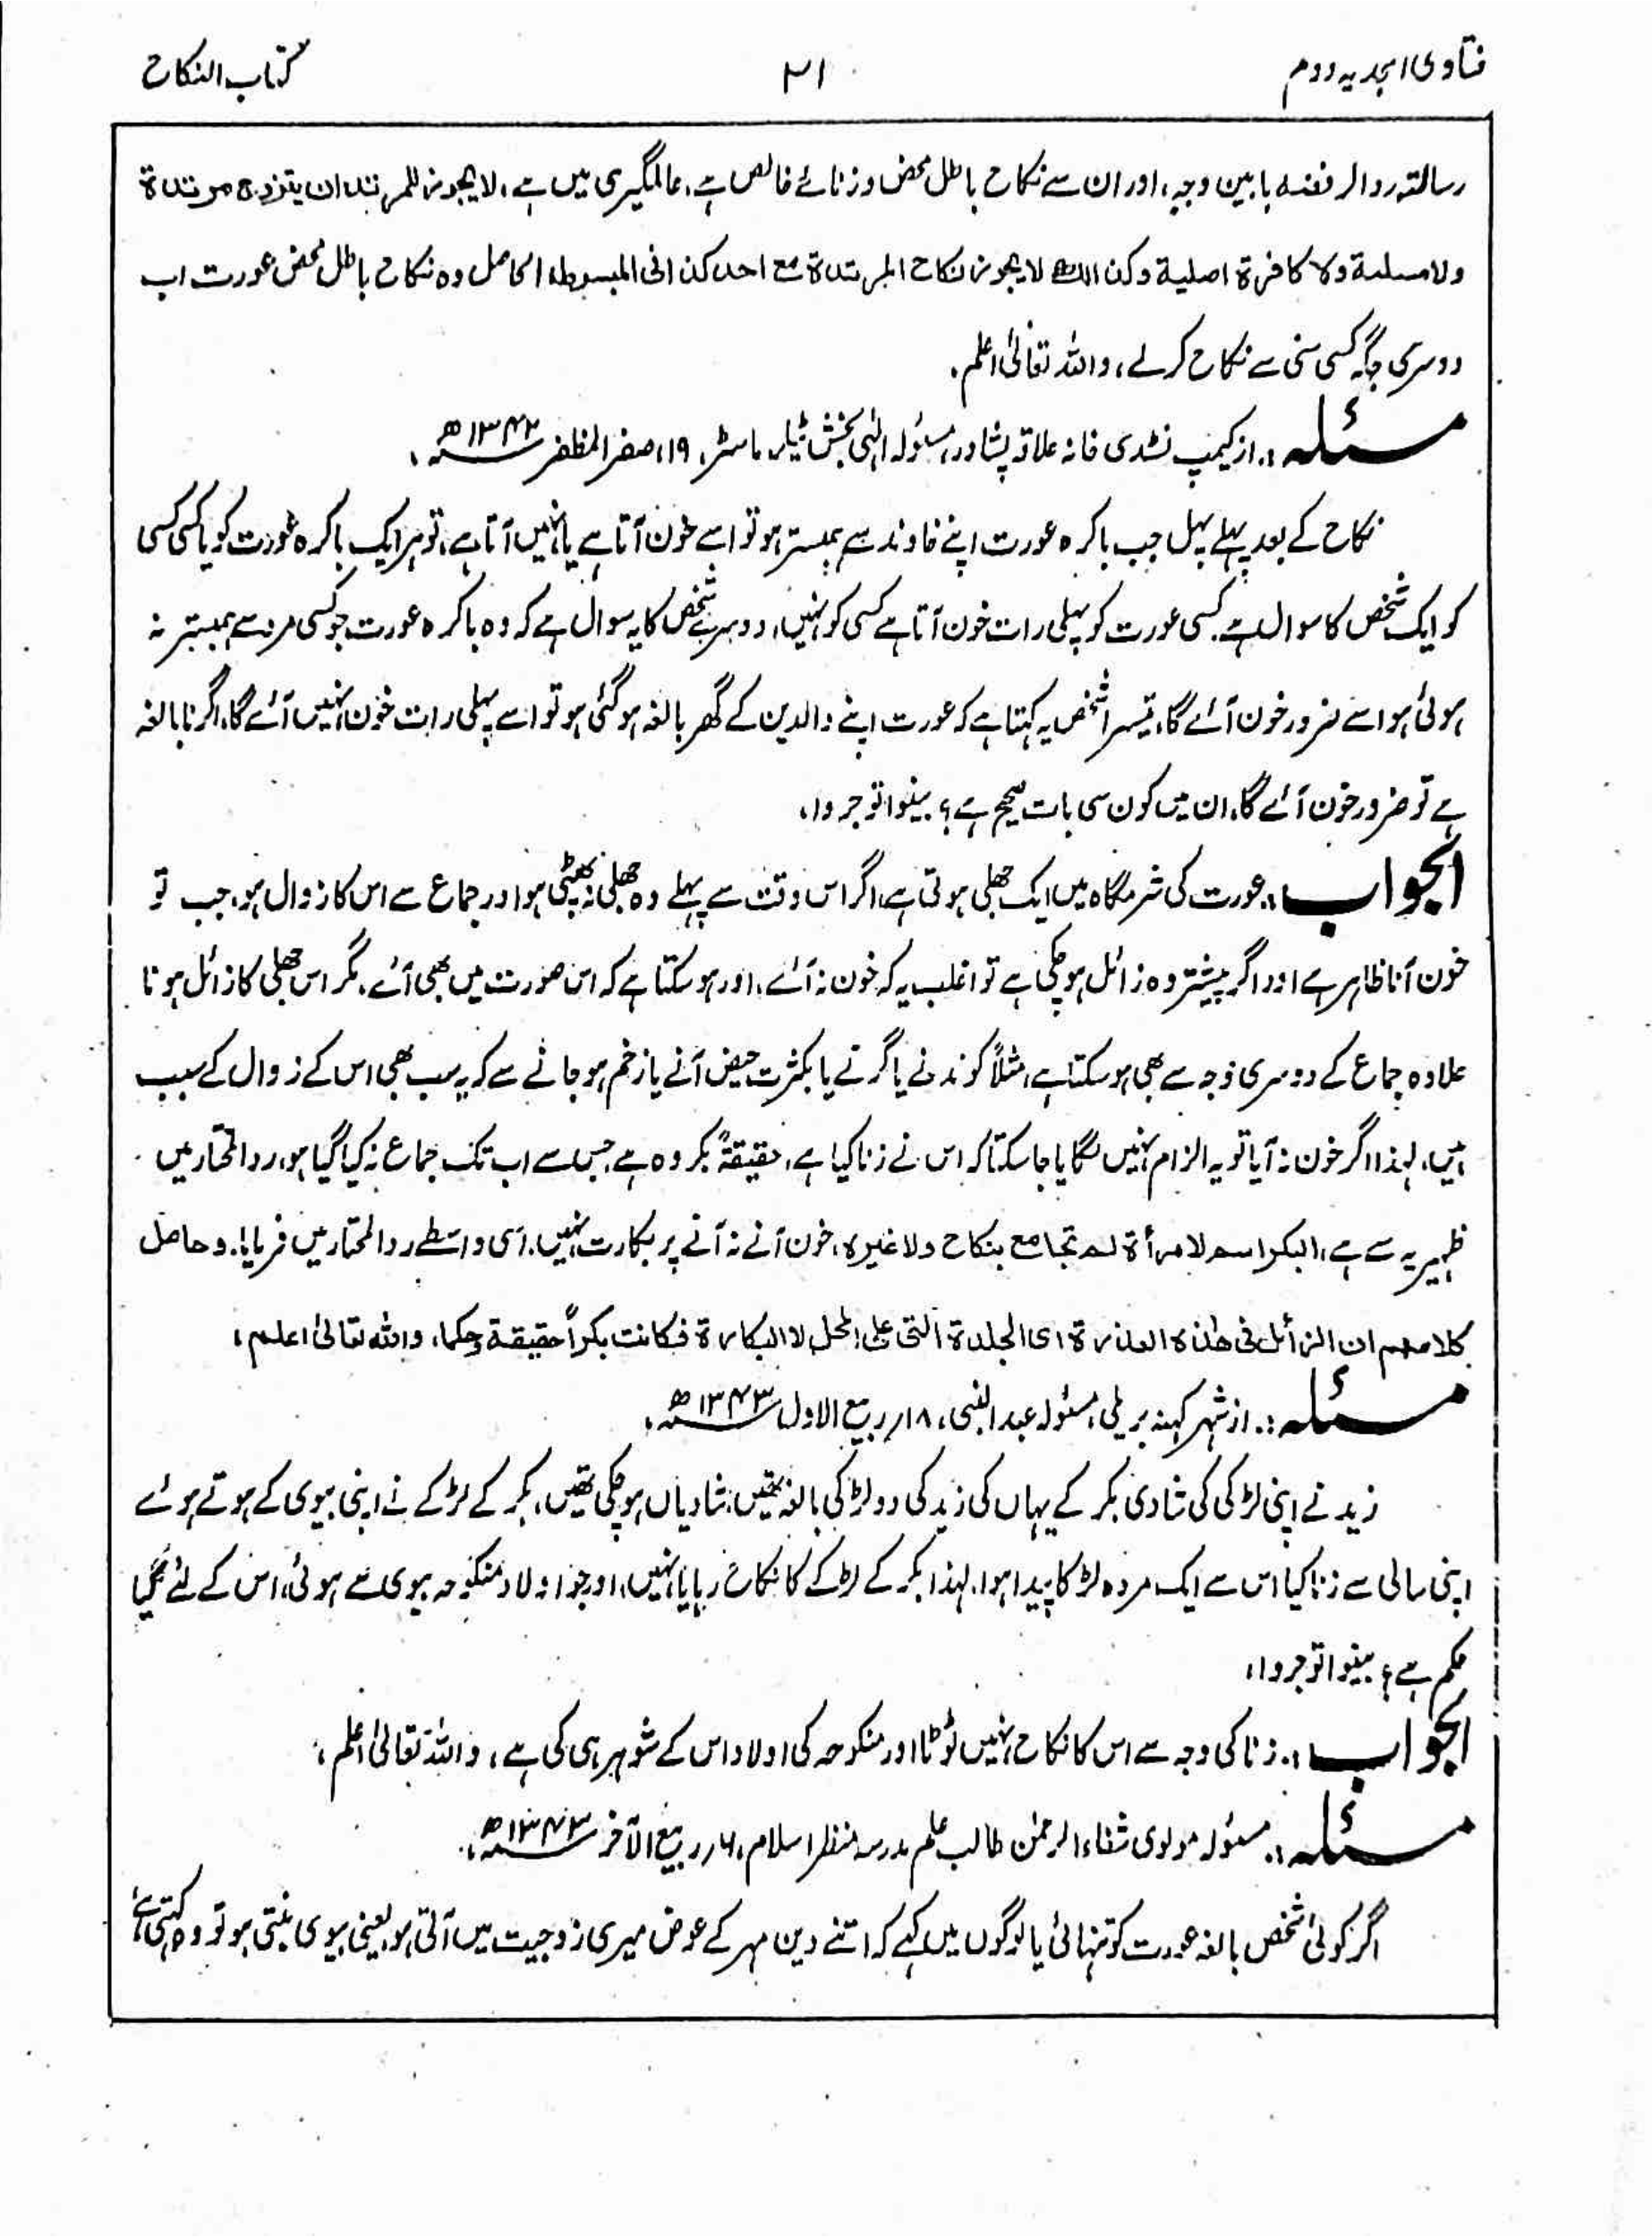 فتاوی امجدیہ دوم
۳۱
کتاب النکاح
رسالتہ رد الرفضہ بابین وجہ، اور ان سے نکاح باطل محض و زنائے خالص ہے، عالمگیری میں ہے، لا یجوز للمرتد ان یتزوج مرتدۃ
ولا مسلمۃ ولا کافرۃ اصلیۃ وکذالک لا یجوز نکاح المرتدۃ مع احد کذا فی المبسوط، الحاصل وہ نکاح باطل محض عورت اب
دوسری جگہ کسی سنی سے نکاح کرلے، واللہ تعالیٰ اعلم۔
مسئلہ:۔ از کیمپ نڈی خانہ علاقہ پشاور، مسئولہ الٰہی بخش ٹیلر ماسٹر، ۱۹، صفر المظفر ۱۳۴۲ھ،
نکاح کے بعد پہلے پہل جب باکرہ عورت اپنے خاوند سے ہمبستر ہو تو اسے خون آتا ہے یا نہیں آتا ہے، تو ہر ایک باکرہ عورت کو یا کسی کسی
کو ایک شخص کا سوال ہے۔ کسی عورت کو پہلی رات خون آتا ہے کسی کو نہیں، دوسرے شخص کا یہ سوال ہے کہ وہ باکرہ عورت جو کسی مرد سے ہمبستر نہ
ہوئی ہو اسے ضرور خون آئے گا، تیسرا شخص یہ کہتا ہے کہ عورت اپنے والدین کے گھر بالغہ ہوگئی ہو تو اسے پہلی رات خون نہیں آئے گا، اگر نابالغہ
ہے تو ضرور خون آئے گا، ان میں کون سی بات صحیح ہے؟ بینوا توجروا،
الجواب:۔ عورت کی شرمگاہ میں ایک جھلی ہوتی ہے، اگر اس وقت سے پہلے وہ جھلی نہ پھٹی ہو اور جماع سے اس کا زوال ہو، جب تو
خون آنا ظاہر ہے اور اگر پیشتر وہ زائل ہوچکی ہے تو اغلب یہ کہ خون نہ آئے، اور ہوسکتا ہے کہ اس صورت میں بھی آئے، مگر اس جھلی کا زائل ہونا
علاوہ جماع کے دوسری وجہ سے بھی ہوسکتا ہے، مثلاً کودنے یا گرنے یا بکثرت حیض آنے یا زخم ہوجانے سے کہ یہ سب بھی اس کے زوال کے سبب
ہیں، لہذا اگر خون نہ آیا تو یہ الزام نہیں لگایا جاسکتا کہ اس نے زنا کیا ہے، حقیقۃً بکر وہ ہے جس سے اب تک جماع نہ کیا گیا ہو، ردالمحتار میں
ظہیریہ سے ہے، البکر اسم لامرأۃ لم تجامع بنکاح ولا غیرہ، خون آنے نہ آنے پر بکارت نہیں، اسی واسطے ردالمحتار میں فرمایا، وحاصل
کلامہم ان الزائل فی ھٰذہ العذرۃ ای الجلدۃ التی علی المحل لا البکارۃ فکانت بکراً حقیقۃ وحکما، واللہ تعالیٰ اعلم،
مسئلہ:۔ از شہر کہنہ بریلی، مسئولہ عبد النبی، ۱۸؍ ربیع الاول ۱۳۴۳ھ،
زید نے اپنی لڑکی کی شادی بکر کے یہاں کی زید کی دو لڑکی بالغہ تھیں، شادیاں ہوچکی تھیں، بکر کے لڑکے نے اپنی بیوی کے ہوتے ہوئے
اپنی سالی سے زنا کیا اس سے ایک مردہ لڑکا پیدا ہوا، لہذا بکر کے لڑکے کا نکاح رہا یا نہیں، اور جو اولاد منکوحہ بیوی سے ہوئی، اس کے لئے کیا
حکم ہے؟ بینوا توجروا،
الجواب:۔ زنا کی وجہ سے اس کا نکاح نہیں ٹوٹا اور منکوحہ کی اولاد اس کے شوہر ہی کی ہے، واللہ تعالیٰ اعلم،
مسئلہ:۔ مسئولہ مولوی شفاء الرحمٰن طالب علم مدرسہ منظر اسلام، ۶؍ ربیع الآخر ۱۳۴۳ھ،
اگر کوئی شخص بالغہ عورت کو تنہائی یا لوگوں میں کہے کہ اتنے دین مہر کے عوض میری زوجیت میں آتی ہو یعنی بیوی بنتی ہو تو وہ کہتی ہے